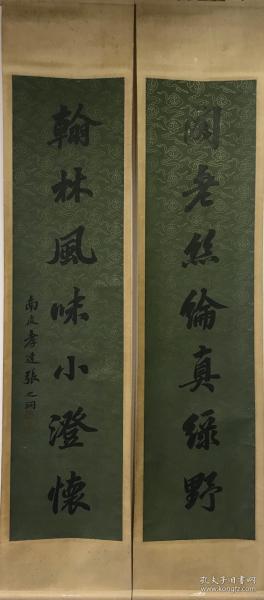 閣老絲綸真綠野
翰林風味小澄懷
南皮孝達張之洞
孔夫子旧书网